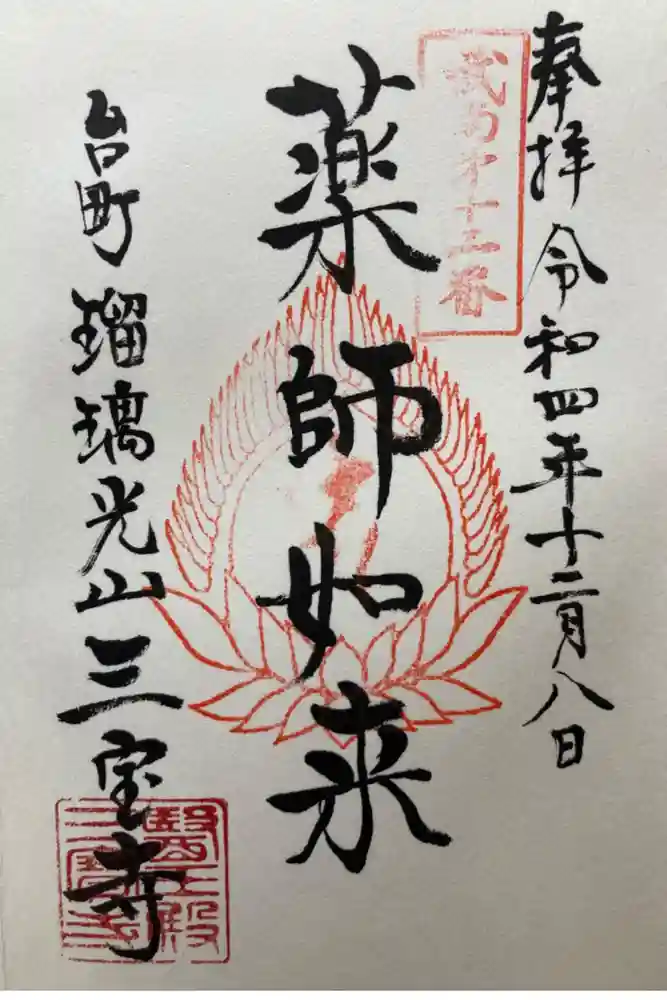 奉拝 令和四年十二月八日
武南十三番
薬師如来
台町 瑠璃光山三宝寺